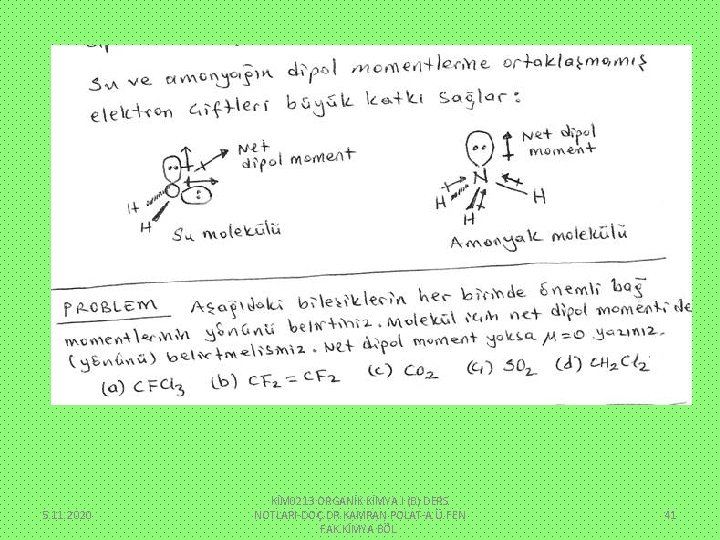 Su ve amonyağın dipol momentlerine ortaklaşmamış
elektron çiftleri büyük katkı sağlar:
Net
dipol moment
O
H
H
Su molekülü
Net dipol
moment
N
H
H
H
Amonyak molekülü
PROBLEM Aşağıdaki bileşiklerin her birinde önemli bağ
momentlerinin yönünü belirtiniz. Molekül için net dipol momenti de
(yönünü) belirtmelisiniz. Net dipol moment yoksa μ=0 yazınız.
(a) CFCl3 (b) CF2=CF2 (c) CO2 (ç) SO2 (d) CH2Cl2
5.11.2020
KİM0213 ORGANİK KİMYA I (B) DERS
NOTLARI-DOÇ.DR.KAMRAN POLAT-A.Ü.FEN
FAK.KİMYA BÖL
41